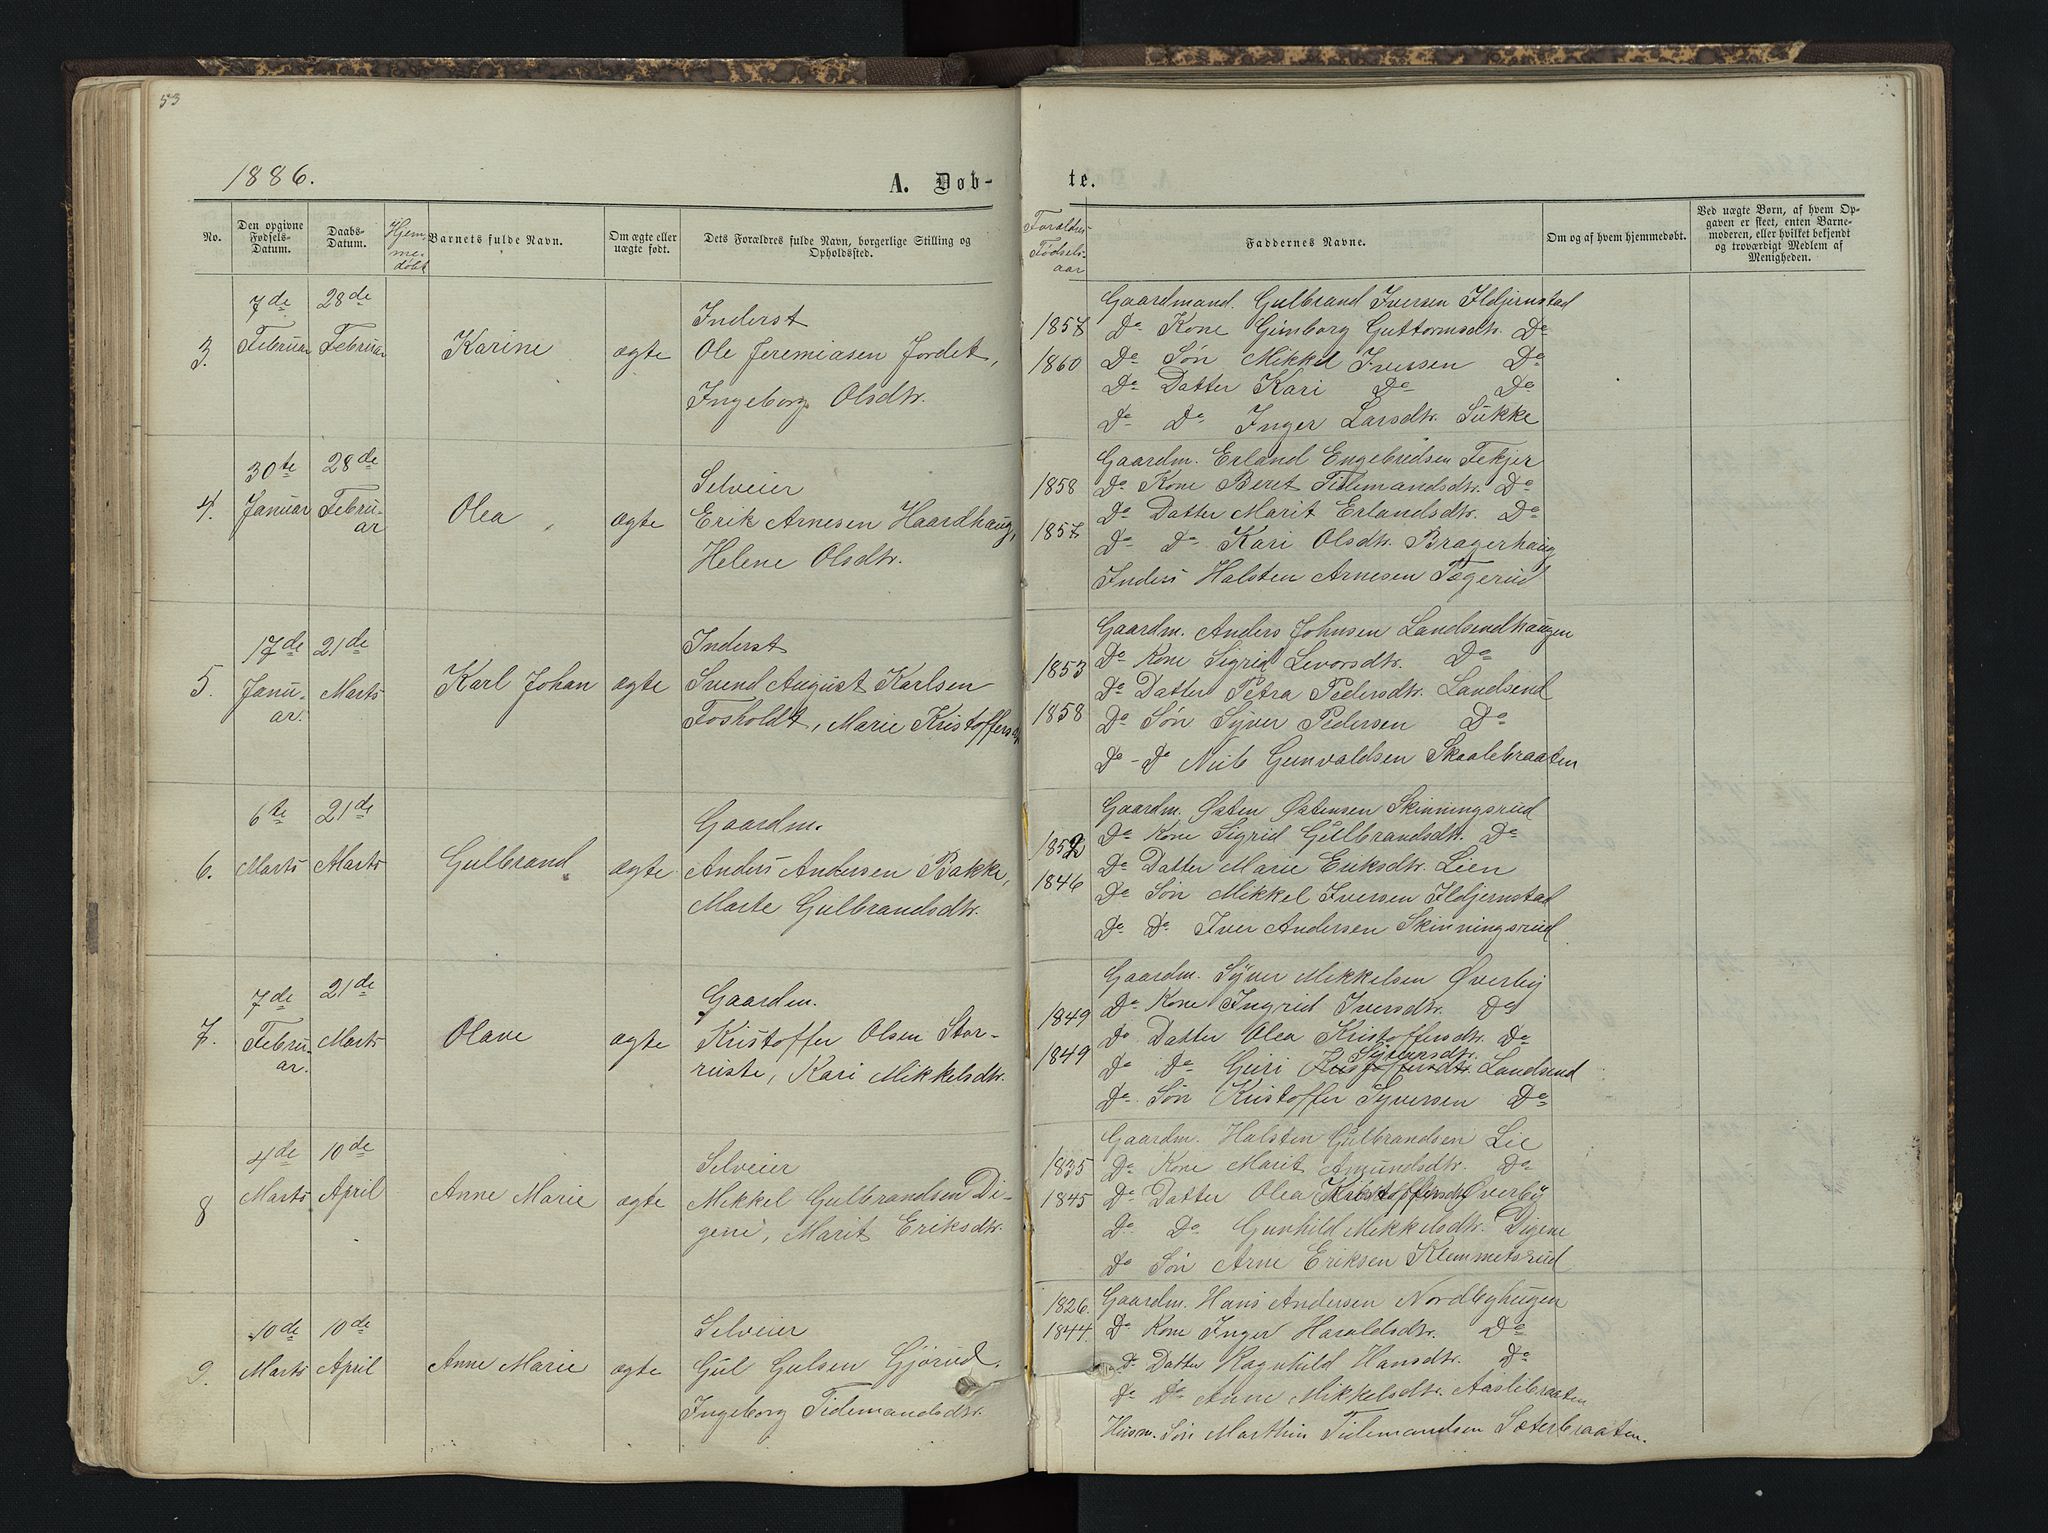 53
1886.
A. Døb-
te.
No.
Den opgivne Fødsels-Datum.
Daabs-Datum.
Hjem-
me-
døbt
Barnets fulde Navn.
Om ægte eller uægte født.
Dets Forældres fulde Navn, borgerlige Stilling og Opholdssted.
Forældres
Fødsels-
aar
Faddernes Navne.
Om og af hvem hjemmedøbt.
Ved uægte Børn, af hvem Op-
gaven er skeet, enten Barne-
moderen, eller hvilket bekjendt
og troværdigt Medlem af
Menigheden.
3.
7de Februar
28de Februar
Karine
ægte
Inderst
Ole Jeremiasen Jordet,
Ingeborg Olsdtr.
1857
1860
Gaardmand. Gulbrand Iversen Ildjernstad
Do Kone Gimborg Guttormsdtr. Do
Do Søn Mikkel Iversen Do
Do Datter Kari Do Do
Do Do Inger Larsdtr. Sukke
4.
30te Januar
28de Febru-
ar
Olea
ægte
Selveier
Erik Arnesen Haardhaug,
Helene Olsdtr.
1858
1857
Gaardm. Erland Engebredsen Tekjer
Do Kone Beret Tidemandsdtr. Do
Do Datter Marit Erlandsdtr. Do
Do Do Kari Olsdtr. Bragerhaug
Inders Halsten Arnesen Tægerud
5.
17de Janu-
ar.
21de Marts
Karl Johan
ægte
Inderst
Svend August Karlsen
Fosholdt, Marie Kristoffersdtr
1853
1858
Gaardm. Anders Johnsen Landsendhaugen
Do Kone Sigrid Levorsdtr. Do
Do Datter Petra Pedersdtr. Landsend
Do Søn Syver Pedersen Do
Do - Do Nils Gunvaldsen Skaalebraaten
6.
6te Marts
21de Marts
Gulbrand
ægte
Gaardm.
Anders Andersen Bakke,
Marte Gulbrandsdtr.
1852
1846
Gaardm. Østen Østensen Skinningsrud
Do Kone Sigrid Gulbrandsdtr. Do
Do Datter Marie Eriksdtr. Lien
Do Søn Mikkel Iversen Ildjernstad
Do Do Iver Andersen Skinningsrud
7.
7de Febru-
ar.
21de Marts
Olave
ægte
Gaardm.
Kristoffer Olsen Stor-
ruste, Kari Mikkelsdtr.
1849
1849
Gaardm. Syver Mikkelsen Øverby
Do Kone Ingrid Iversdtr. Do
Do Datter Olea Kristoffersdtr. Do
Syversdtr.
Do Do Guri Kristoffersdtr. Landsend
Do Søn Kristoffer Syversen Do
8
4de Marts
10de April
Anne Marie
ægte
Selveier
Mikkel Gulbrandsen Di-
gene, Marit Eriksdtr.
1835
1845
Gaardm. Halsten Gulbrandsen Lie
Do Kone Marit Amundsdtr. Do
Do Datter Olea Kristoffersdtr Øverby
Do Do Gunhild Mikkelsdtr. Digene
Do Søn Arne Eriksen Klemmetsrud
9.
10de Marts
10de April
Anne Marie
ægte
Selveier
Gul Gulsen Gjørud.
Ingeborg Tidemandsdtr.
1826.
1844.
Gaardm. Hans Andersen Nordbyhugen
Do Kone Inger Haraldsdtr. Do
Do Datter Ragnhild Hansdtr. Do
Do Do Anne Mikkelsdtr. Aaslibraaten
Husm. Søn Marthin Tidemandsen Sæterbraaten.